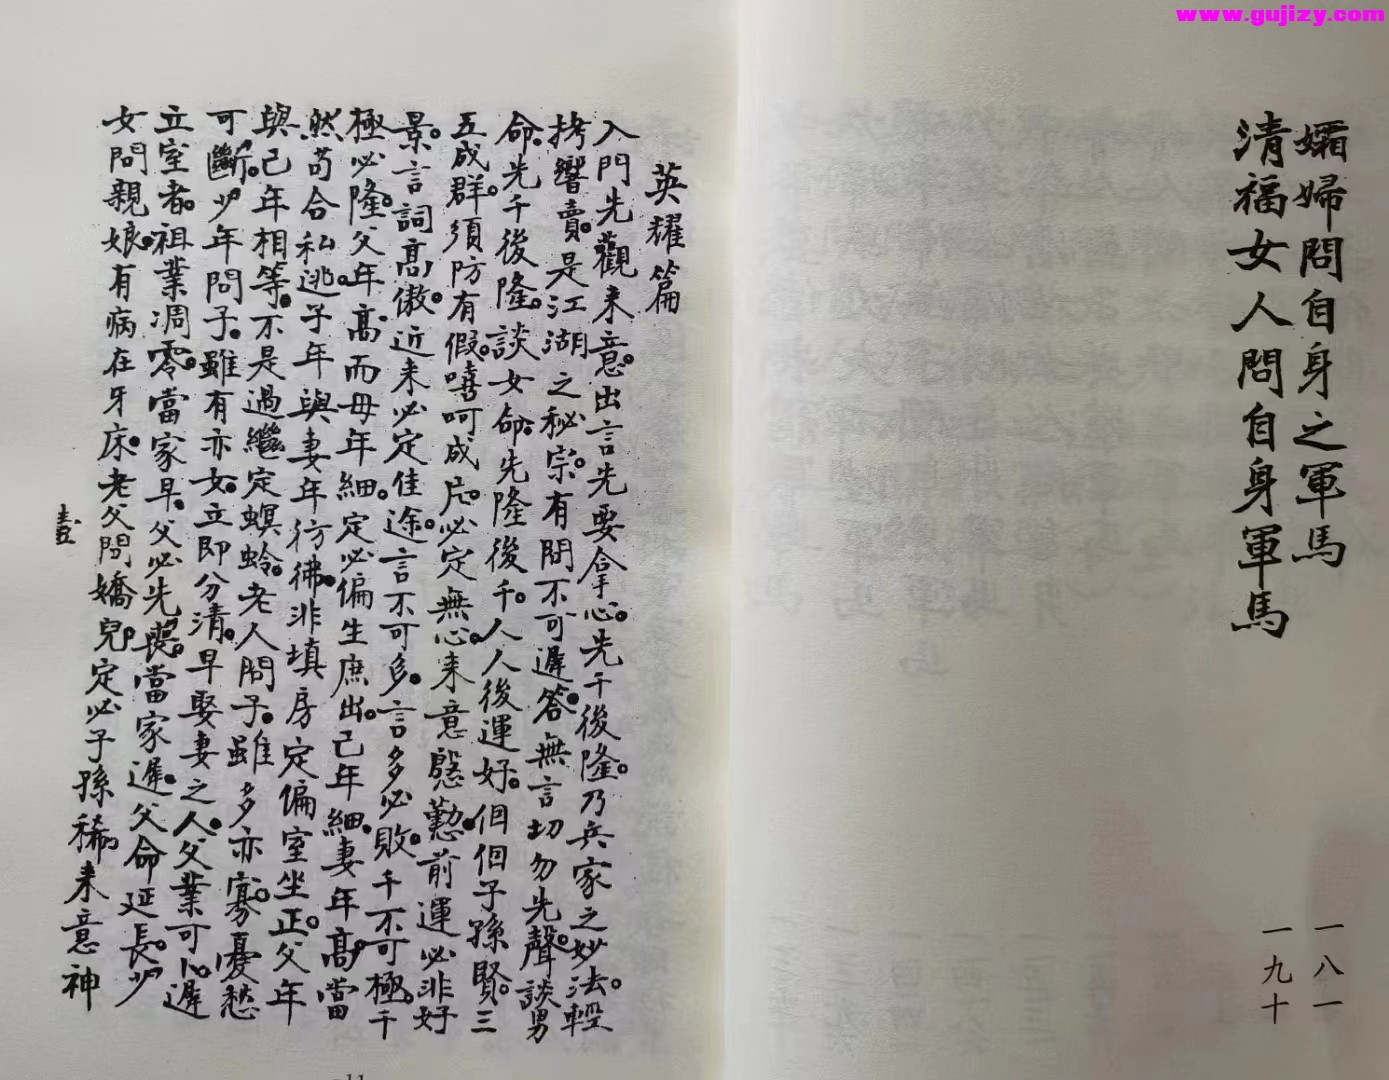 www.gujizy.com
孀婦問自身之軍馬 一八一
清福女人問自身軍馬 一九十
英耀篇
入門先觀来意。出言先要拿心。先千後隆。乃兵家之妙法。輕
拷響賣。是江湖之秘宗。有問不可遲答。無言切勿先聲。談男
命。先千後隆。談女命。先隆後千。人人後運好。佪佪子孫賢。三
五成群。須防有假。嘻呵成片。必定無心。来意慇懃。前運必非好
景。言詞高傲。近来必定佳途。言不可多。言多必敗。千不可極。千
極必隆。父年高。而母年細。定必偏生庶出。己年細。妻年高。當
然苟合私逃。子年與妻年彷彿。非填房定偏室坐正。父年
與己年相等。不是過繼定螟蛉。老人問子。雖多亦寡。憂愁
可斷。少年問子。雖有亦女。立即分清。早娶妻之人。父業可心遲
立室者。祖業凋零。當家早。父必先喪。當家遲。父命延長。少
女問親娘。有病在牙床。老父問嬌兒。定必子孫稀。来意神
壹
11